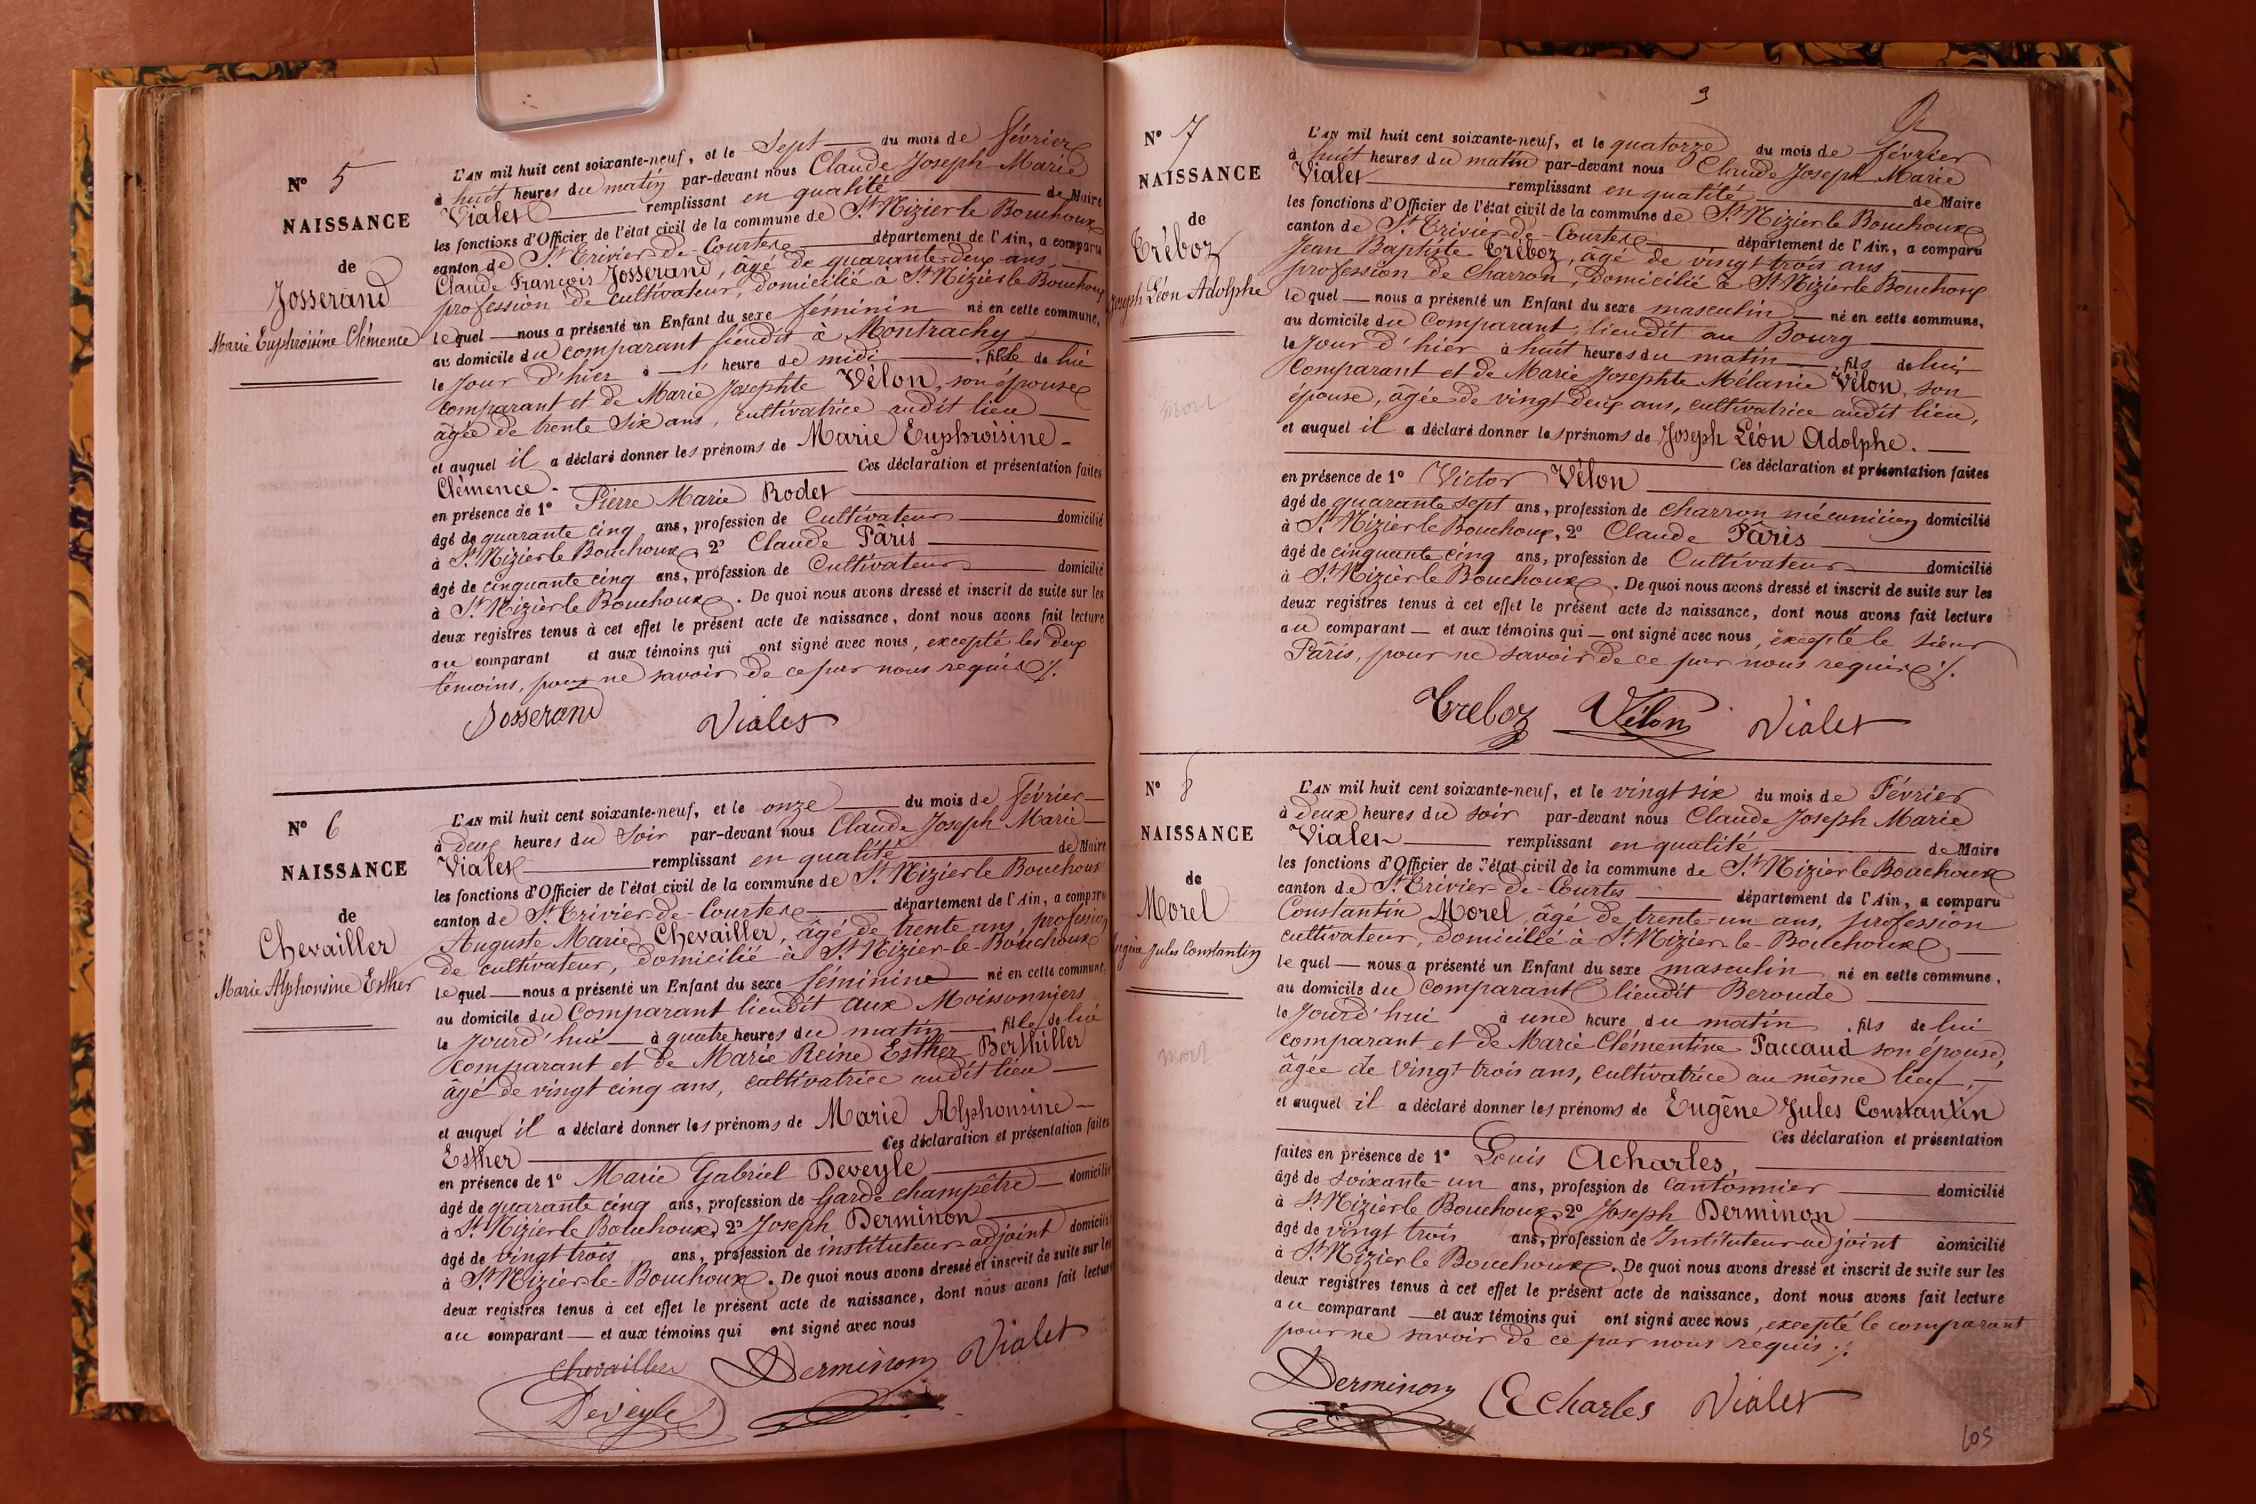 N° 5
NAISSANCE
de
Josserand
Marie Euphroisine Clémence
L'AN mil huit cent soixante-neuf, et le sept du mois de février
à huit heures du matin par-devant nous Claude Joseph Marie
Vialet remplissant en qualité de Maire
les fonctions d'Officier de l'état civil de la commune de St Nizier le Bouchoux
canton de St Trivier-de-Courtes département de l'Ain, a comparu
Claude François Josserand, âgé de quarante-deux ans,
profession de cultivateur, domicilié à St Nizier le Bouchoux
lequel nous a présenté un Enfant du sexe féminin né en cette commune,
au domicile du comparant lieudit à Montrachy
le jour d'hier à heure de midi, fille de lui
comparant et de Marie Josephte Vélon, son épouse
âgée de trente six ans, cultivatrice audit lieu
et auquel il a déclaré donner les prénoms de Marie Euphroisine-
Clémence. Ces déclaration et présentation faites
en présence de 1° Pierre Marie Rodet
âgé de quarante cinq ans, profession de Cultivateur domicilié
à St Nizier le Bouchoux, 2° Claude Pâris
âgé de cinquante cinq ans, profession de Cultivateur domicilié
à St Nizier le Bouchoux. De quoi nous avons dressé et inscrit de suite sur les
deux registres tenus à cet effet le présent acte de naissance, dont nous avons fait lecture
au comparant et aux témoins qui ont signé avec nous, excepté les deux
témoins, pour ne savoir de ce par nous requis ./.
Josserand Vialet
N° 6
NAISSANCE
de
Chevailler
Marie Alphonsine Esther
L'AN mil huit cent soixante-neuf, et le onze du mois de février
à deux heures du soir par-devant nous Claude Joseph Marie
Vialet remplissant en qualité de Maire
les fonctions d'Officier de l'état civil de la commune de St Nizier le Bouchoux
canton de St Trivier-de-Courtes département de l'Ain, a comparu
Auguste Marie Chevailler, âgé de trente ans, profession
de cultivateur, domicilié à St Nizier-le-Bouchoux
lequel nous a présenté un Enfant du sexe féminine né en cette commune,
au domicile du Comparant lieudit aux Moissonniers
le jourd'hui à quatre heures du matin, fille de lui
comparant et de Marie Reine Esther Berthiller
âgé de vingt cinq ans, cultivatrice audit lieu
et auquel il a déclaré donner les prénoms de Marie Alphonsine-
Esther Ces déclaration et présentation faites
en présence de 1° Marie Gabriel Deveyle domicilié
âgé de quarante cinq ans, profession de Garde champêtre
à St Nizier le Bouchoux, 2° Joseph Derminon
âgé de vingt trois ans, profession de instituteur-adjoint domicilié
à St Nizier-le-Bouchoux. De quoi nous avons dressé et inscrit de suite sur les
deux registres tenus à cet effet le présent acte de naissance, dont nous avons fait lecture
au comparant et aux témoins qui ont signé avec nous
Chevailler Derminon Vialet
Deveyle
3
N° 7
NAISSANCE
de
Tréboz
Joseph Léon Adolphe
mort
L'AN mil huit cent soixante-neuf, et le quatorze du mois de février
à huit heures du matin par-devant nous Claude Joseph Marie
Vialet remplissant en qualité de Maire
les fonctions d'Officier de l'état civil de la commune de St Nizier le Bouchoux
canton de St Trivier-de-Courtes département de l'Ain, a comparu
Jean Baptiste Tréboz, âgé de vingt-trois ans,
profession de charron, domicilié à St Nizier le Bouchoux
lequel nous a présenté un Enfant du sexe masculin né en cette commune,
au domicile du Comparant, lieudit au Bourg
le jour d'hier à huit heures du matin, fils de lui
comparant et de Marie Josephte Mélanie Vélon, son
épouse, âgée de vingt deux ans, cultivatrice audit lieu,
et auquel il a déclaré donner les prénoms de Joseph Léon Adolphe.
Ces déclaration et présentation faites
en présence de 1° Victor Vélon
âgé de quarante sept ans, profession de charron mécanicien domicilié
à St Nizier le Bouchoux, 2° Claude Pâris
âgé de cinquante cinq ans, profession de Cultivateur domicilié
à St Nizier le Bouchoux. De quoi nous avons dressé et inscrit de suite sur les
deux registres tenus à cet effet le présent acte de naissance, dont nous avons fait lecture
au comparant et aux témoins qui ont signé avec nous, excepté le sieur
Pâris, pour ne savoir de ce par nous requis ./.
Treboz Vélon Vialet
N° 8
NAISSANCE
de
Morel
Eugène Jules Constantin
mort
L'AN mil huit cent soixante-neuf, et le vingt six du mois de Février
à deux heures du soir par-devant nous Claude Joseph Marie
Vialet remplissant en qualité de Maire
les fonctions d'Officier de l'état civil de la commune de St Nizier le Bouchoux
canton de St Trivier-de-Courtes département de l'Ain, a comparu
Constantin Morel, âgé de trente-un ans, profession
cultivateur, domicilié à St Nizier-le-Bouchoux
lequel nous a présenté un Enfant du sexe masculin né en cette commune,
au domicile du comparant lieudit Beroude
le jourd'hui à une heure du matin, fils de lui
comparant et de Marie Clémentine Paccaud son épouse,
âgée de vingt-trois ans, cultivatrice au même lieu,
et auquel il a déclaré donner les prénoms de Eugène Jules Constantin
Ces déclaration et présentation
faites en présence de 1° Louis Acharles,
âgé de soixante-un ans, profession de cantonnier domicilié
à St Nizier le Bouchoux, 2° Joseph Derminon
âgé de vingt trois ans, profession de Instituteur-adjoint domicilié
à St Nizier le Bouchoux. De quoi nous avons dressé et inscrit de suite sur les
deux registres tenus à cet effet le présent acte de naissance, dont nous avons fait lecture
au comparant et aux témoins qui ont signé avec nous, excepté le comparant
pour ne savoir de ce par nous requis ./.
Derminon Acharles Vialet
605